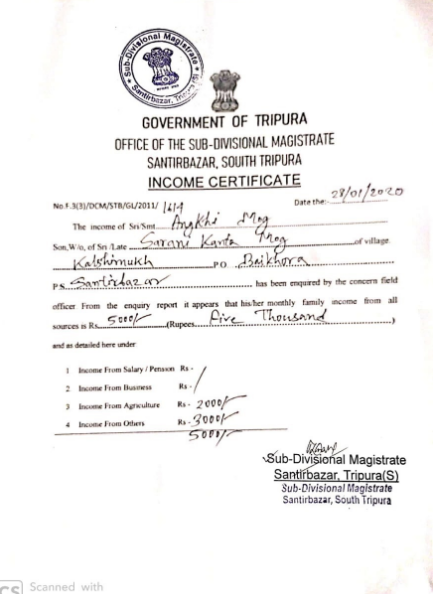 Sub-Divisional Magistrate
Santirbazar, Tripura(S)
GOVERNMENT OF TRIPURA
OFFICE OF THE SUB-DIVISIONAL MAGISTRATE
SANTIRBAZAR, SOUTH TRIPURA
INCOME CERTIFICATE
No.F.3(3)/DCM/STB/GL/2011/ 1614 Date the: 28/01/2020
The income of Sri/Smt. Angkhi Mog
Son,W/o, of Sri /Late Sarani Kanta Mog of village
Kalshimukh P.O Baikhora
P.S. Santirbazar has been enquired by the concern field
officer. From the enquiry report it appears that his/her monthly family income from all
sources is Rs. 5000/- (Rupees. Five Thousand )
and as detailed here under
1 Income From Salary / Pension Rs -
2 Income From Business Rs -
3 Income From Agriculture Rs - 2000/-
4 Income From Others Rs - 3000/-
5000/-
Sub-Divisional Magistrate
Santirbazar, Tripura(S)
Sub-Divisional Magistrate
Santirbazar, South Tripura
CS Scanned with